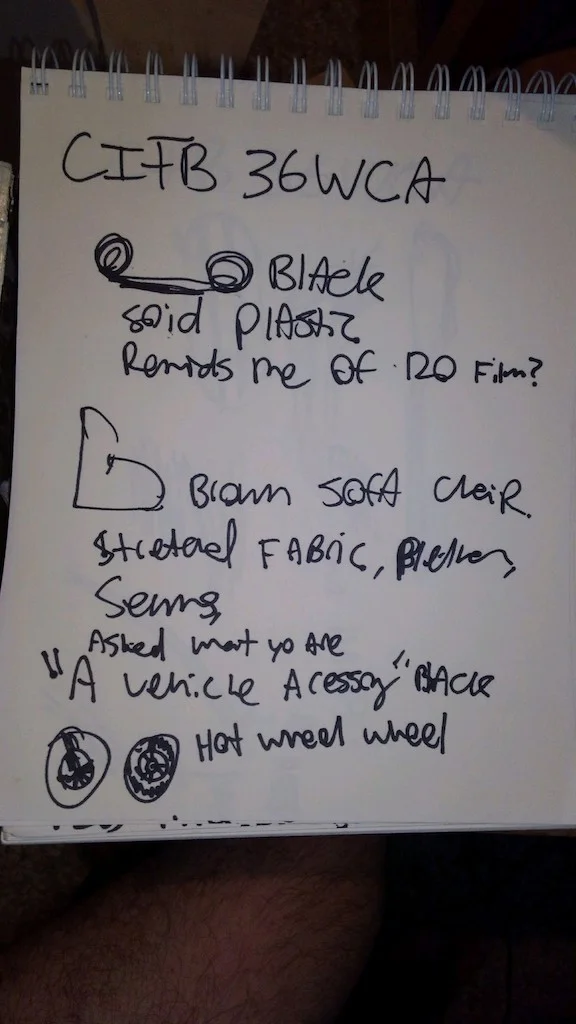 CIFB 36WCA
Black
soid Plastic
Remids me of 120 Film?
Brown Soft Cheir.
FABRIC,
Seams,
Asked what yo Are
"A vehicle Acessoy" Black
Hot wreel wheel